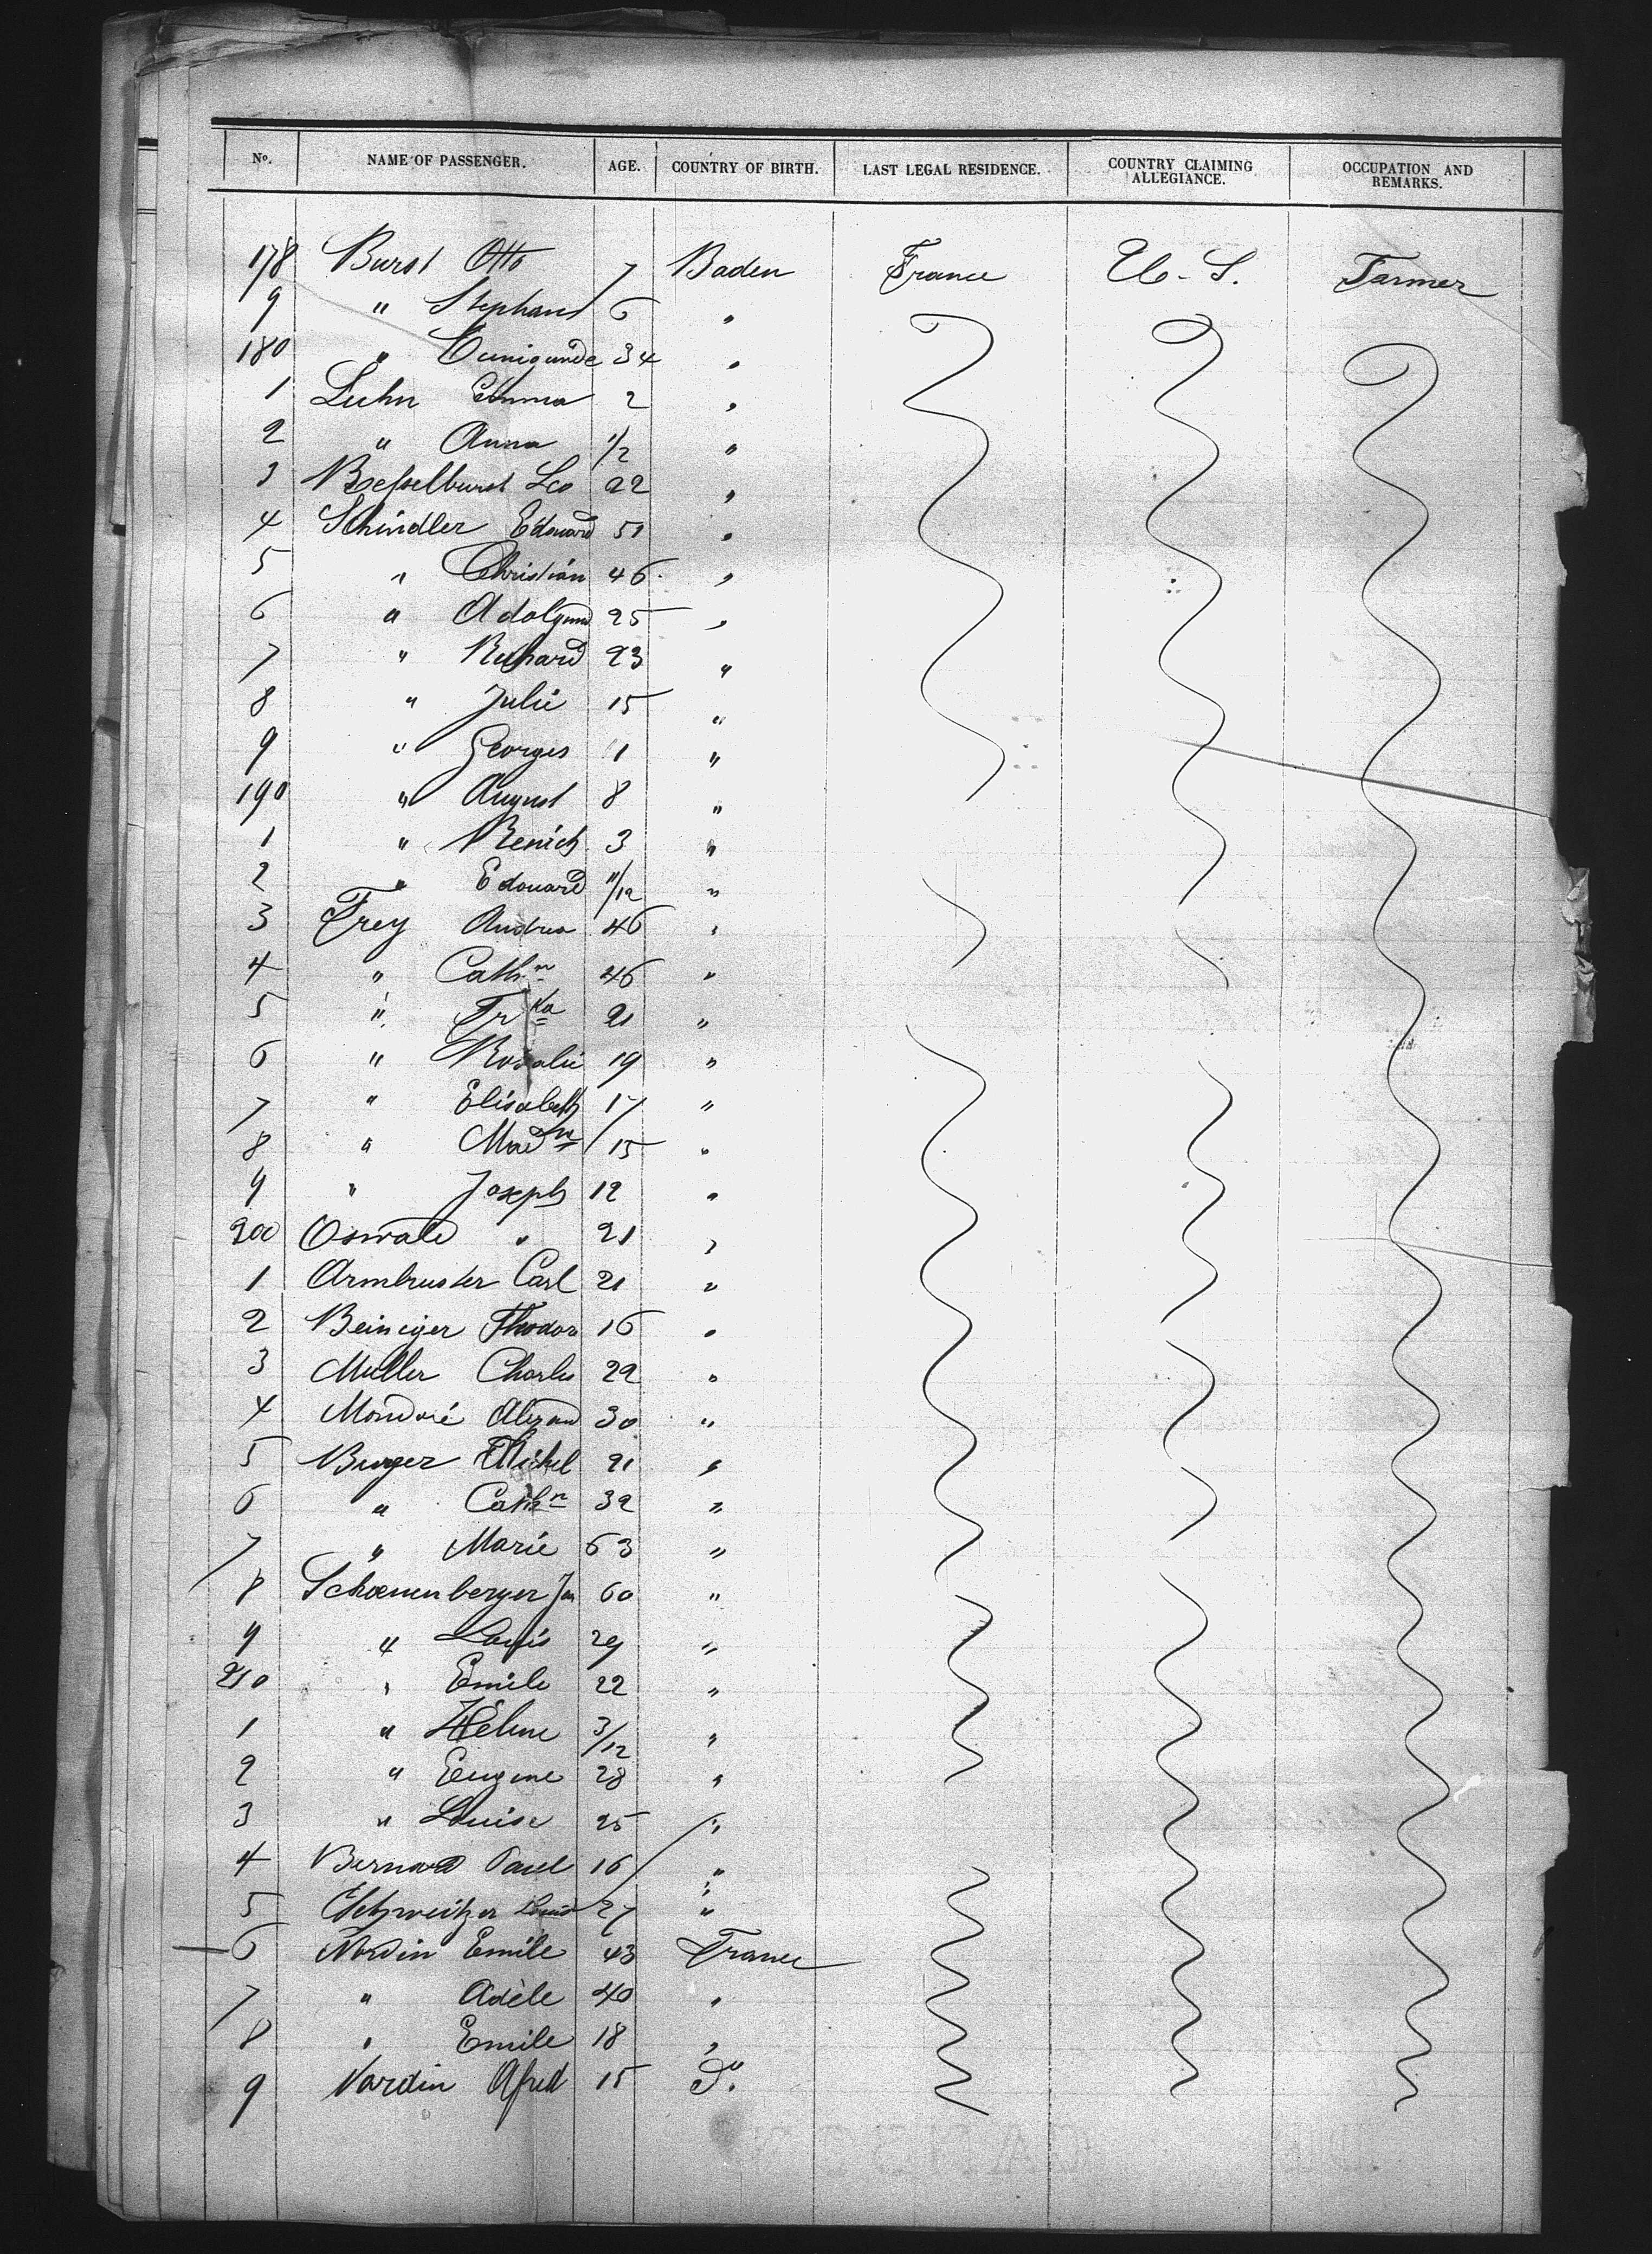 No. NAME OF PASSENGER. AGE. COUNTRY OF BIRTH. LAST LEGAL RESIDENCE. COUNTRY CLAIMING ALLEGIANCE. OCCUPATION AND REMARKS.
178 Burst Otto 7 Baden France U.-S. Farmer
9 " Stephan 6 "
180 " Cunigunde 34 "
1 Luhn Emma 2 "
2 " Anna 1/2 "
3 Besselburst Leo 22 "
4 Schindler Edouard 51 "
5 " Christian 46 "
6 " 25 "
7 " Richard 23 "
8 " Julie 15 "
9 " Georges 11 "
190 " August 8 "
1 " 3 "
2 " Edouard 11/12 "
3 Frey Andrea 46 "
4 " Cathn 46 "
5 " Frka 21 "
6 " Rosalie 19 "
7 " Elisabeth 17 "
8 " Madn 15 "
9 " Joseph 12 "
200 Oswald " 21 "
1 Armbruster Carl 21 "
2 Beiniger Thodor 16 "
3 Muller Charles 22 "
4 30 "
5 Burger Michel 21 "
6 " Cathn 32 "
7 " Marie 63 "
8 Schoenenberger Jos 60 "
9 " Louis 29 "
210 " Emile 22 "
1 " Hélène 3/12 "
2 " Eugene 28 "
3 " Louise 25 "
4 Bernard Paul 16 "
5 Schweitzer Louis 27 "
6 Nardin Emile 43 France
7 " Adèle 40 "
8 " Emile 18 "
9 Nardin Afred 15 do.